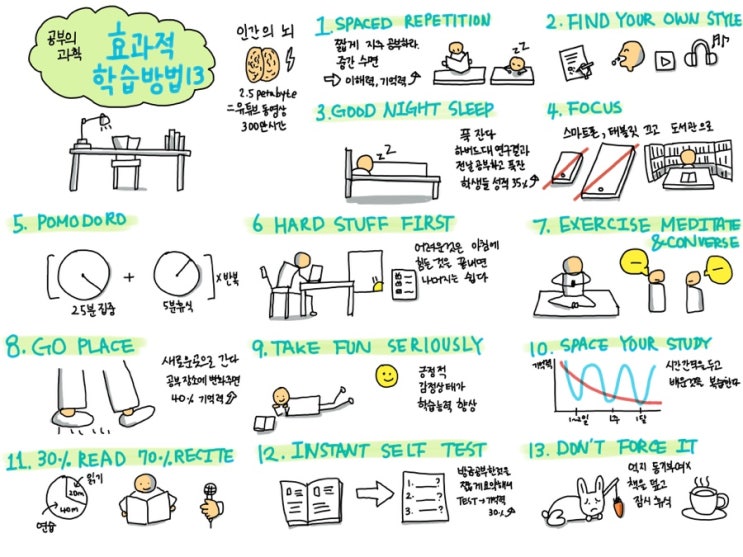 공부의
과학
효과적
학습방법13
인간의 뇌
2.5 petabyte
=유튜브 동영상
300만시간
1. SPACED REPETITION
짧게 자주 공부하라.
중간 수면
⇨ 이해력, 기억력↗
zz
2. FIND YOUR OWN STYLE
3. GOOD NIGHT SLEEP
zz
푹 잔다
하버드대 연구결과
전날 공부하고 푹잔
학생들 성적 35%↗
4. FOCUS
스마트폰, 태블릿 끄고 도서관으로
5. POMODORO
[ + ] x반복
25분 집중
5분휴식
6 HARD STUFF FIRST
어려운것은 아침에
힘든 것은 끝내면
나머지는 쉽다
7. EXERCISE MEDITATE
& CONVERSE
8. GO PLACE
새로운곳으로 간다
공부 장소에 변화주면
40% 기억력↗
9. TAKE FUN SERIOUSLY
긍정적
감정상태가
학습능력 향상
10. SPACE YOUR STUDY
기억력
1~2일
1주
1달
시간간격을 두고
배운것을 복습한다
11. 30% READ 70% RECITE
읽기
20m
40m
연습
12. INSTANT SELF TEST
1. —?
2. —?
3. —?
방금공부한것을
짧게 요약해서
TEST → 기억력
30%↗
13. DON'T FORCE IT
억지 동기부여x
책을 덮고
잠시 휴식